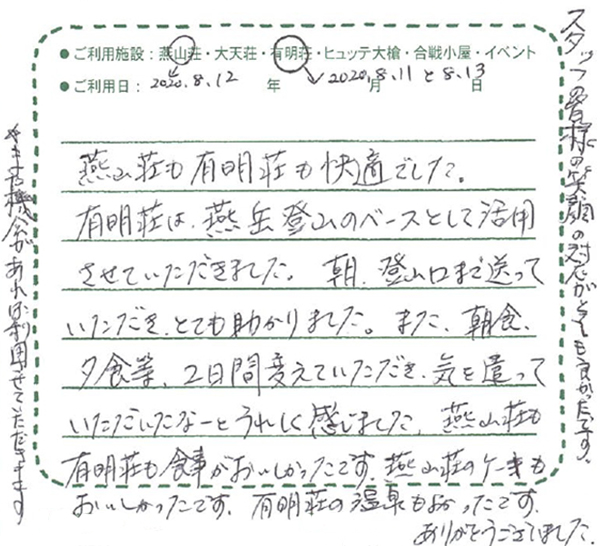 ●ご利用施設：燕山荘・大天荘・有明荘・ヒュッテ大槍・合戦小屋・イベント
●ご利用日： 2020.8.12 年 2020.8.11 と 8.13 月 日
燕山荘も有明荘も快適でした。
有明荘は、燕岳登山のベースとして活用
させていただきました。 朝、登山口まで送って
いただき、とても助かりました。また、朝食、
夕食等、2日間変えていただき、気を遣って
いただいたなーとうれしく感じました。燕山荘も
有明荘も食事がおいしかったです。燕山荘のケーキも
おいしかったです。有明荘の温泉もよかったです。
ありがとうございました。
スタッフの皆様の笑顔の対応がとても良かったです。
また機会があれば利用させていただきます